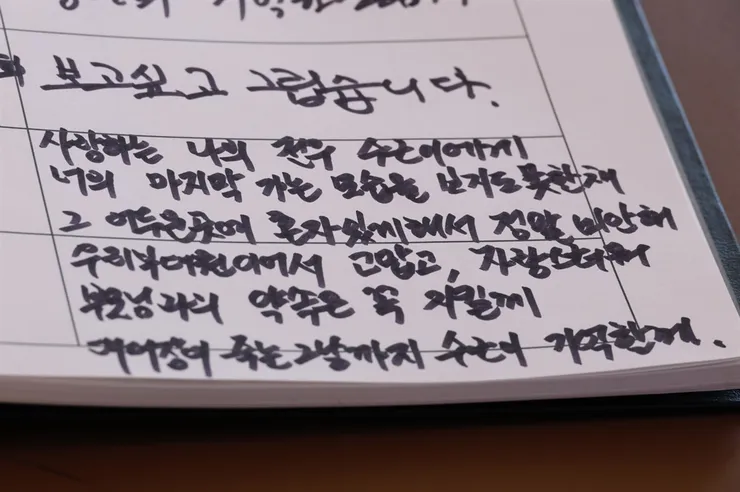 보고싶고 그립습니다.
사랑하는 나의 전우 수근이에게
너의 마지막 가는 모습을 보지도 못한채
그 어두운곳에 혼자있게해서 정말 미안해
우리의대원이어서 고맙고, 자랑스러워
부모님과의 약속은 꼭 지킬께
죽는그날까지 수근이 기억할께.